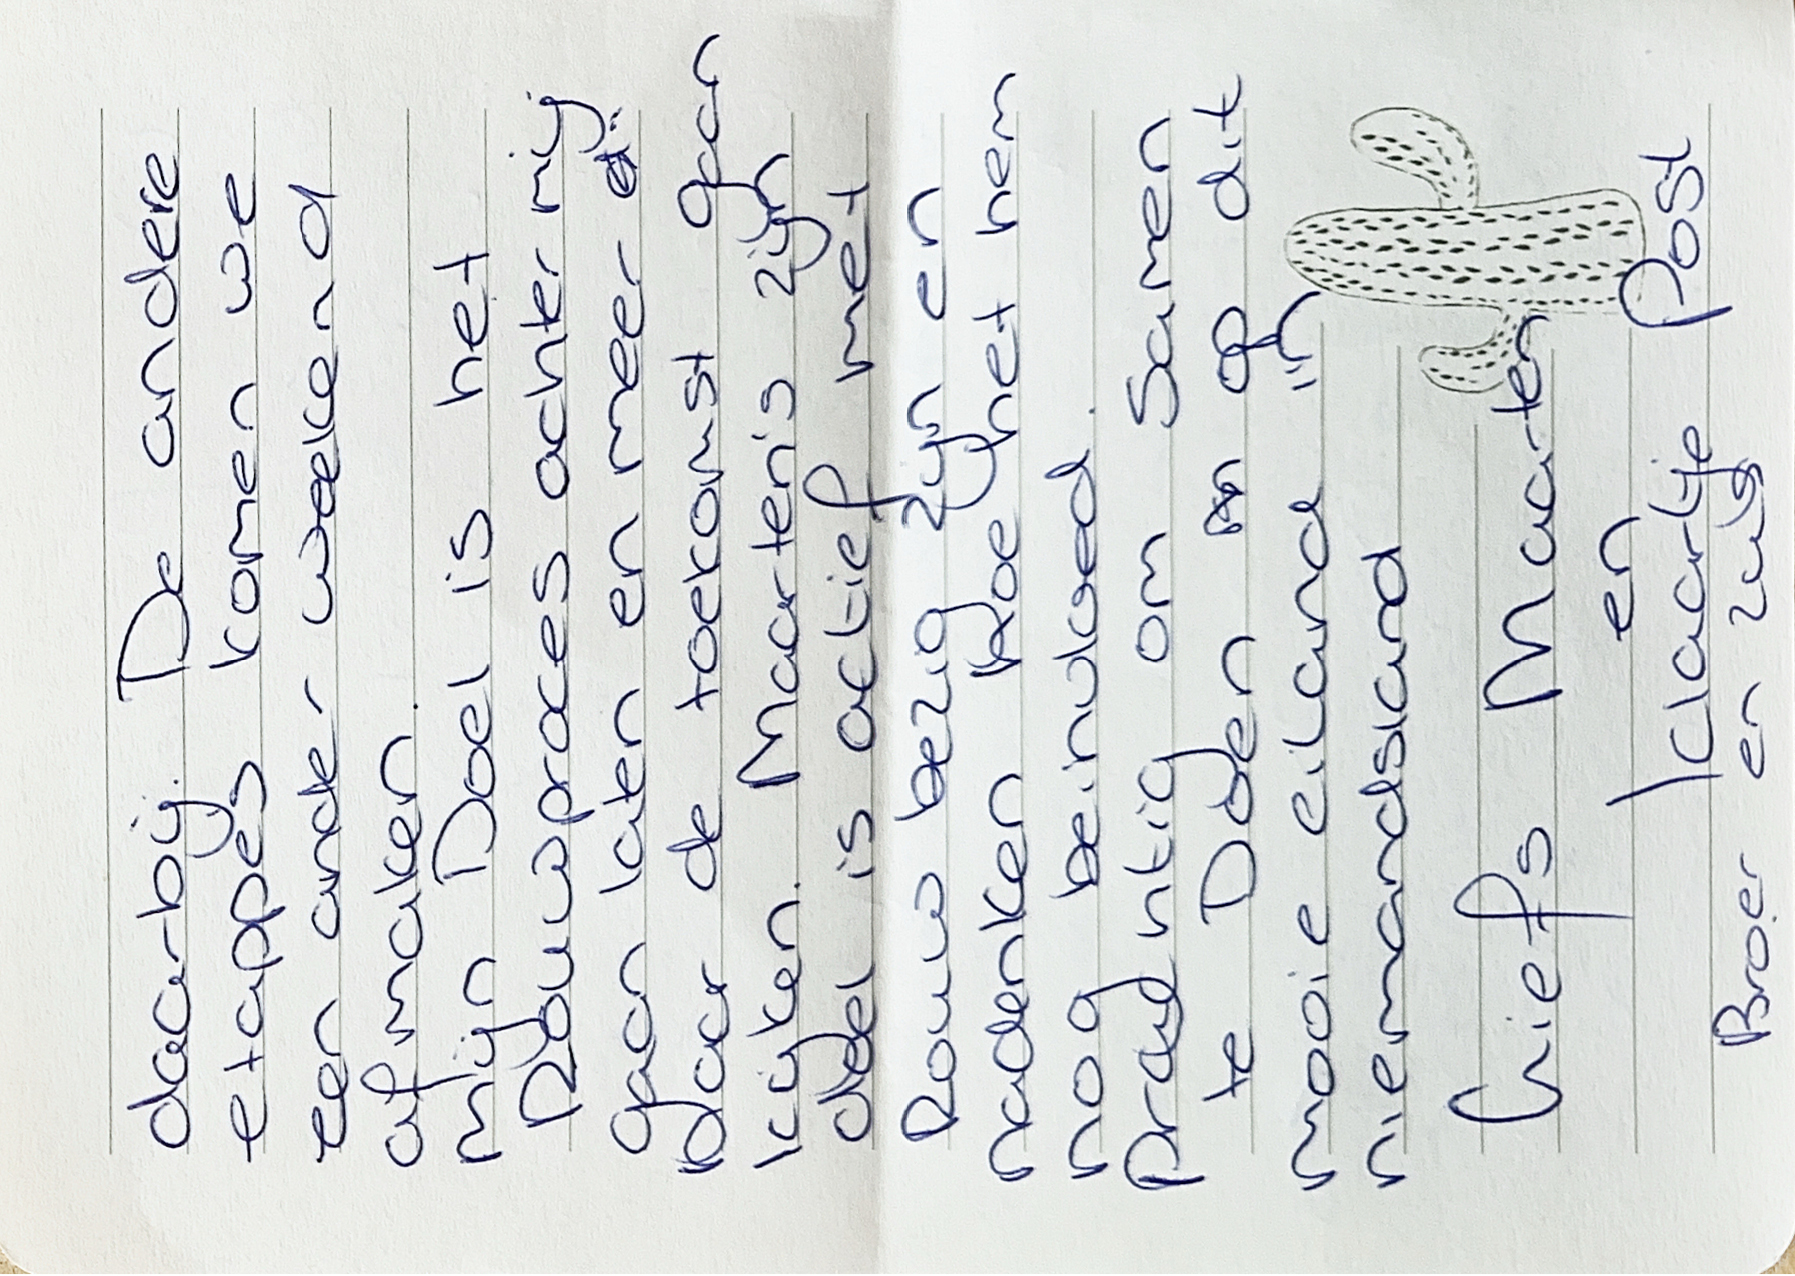 daar bij. De andere
etappes komen we
een ander weekend
afmaken.
mijn Doel is het
Rouwproces achter mij
gaan laten en meer
naar de toekomst gaan
kijken. Maarten's zijn
doel is actief met
Rouw bezig zijn en
nadenken Hoe het hem
nog beinvloed.
Prachtig om samen
te Doen op dit
mooie eiland in
niemandsland
Liefs Maarten
en
Klaartje Post
Broer en zus